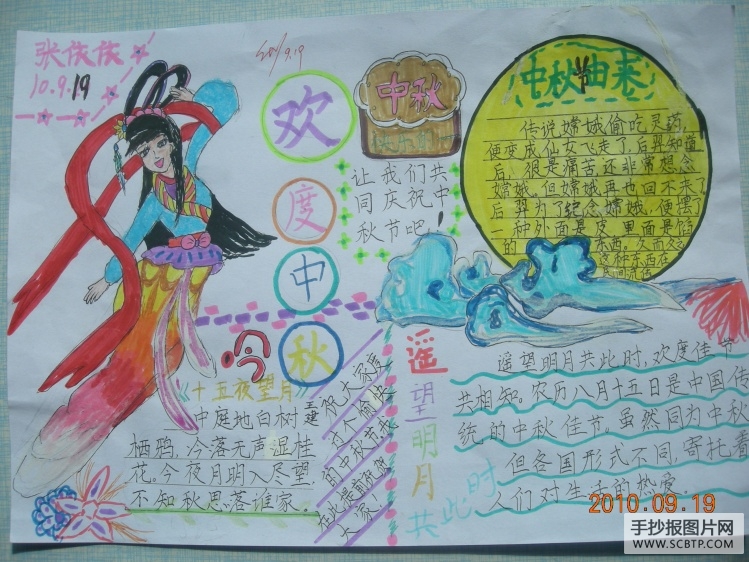 张依依
10.9.19
9.19
欢
度
中
秋
中秋
让我们共
同庆祝中
秋节吧！
中秋节由来
传说嫦娥偷吃灵药，
便变成仙女飞走了，后羿知道
后，很是痛苦还非常想念
嫦娥。但嫦娥再也回不来了
后羿为了纪念嫦娥，便摆了
一种外面是皮，里面是馅
的 东西，久而久之
这种东西在
民间流传
吟
《十五夜望月》
王建
中庭地白树
栖鸦，冷落无声湿桂
花。今夜月明人尽望，
不知秋思落谁家。
祝大家度
过个愉快
的中秋节，我
在此提前祝贺
大家！
遥
望
明
月
共此时
遥望明月共此时，欢度佳节
共相知。农历八月十五日是中国传
统的中秋佳节。虽然同为中秋
但各国形式不同，寄托着
人们对生活的热爱
2010.09.19
手抄报图片网
WWW.SCBTP.COM